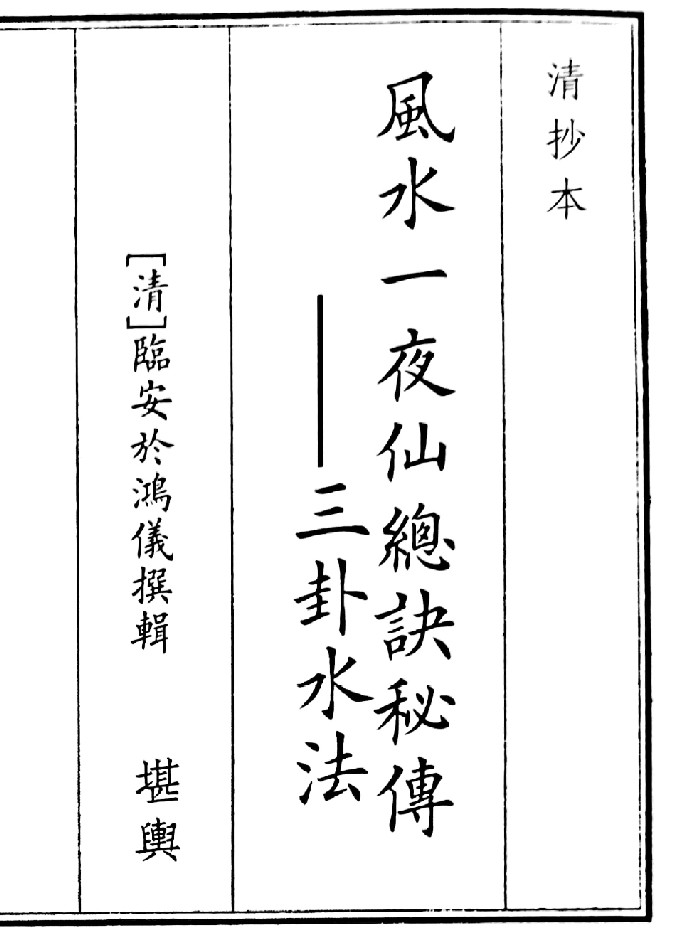 清抄本
風水一夜仙總訣秘傳
——三卦水法
[清]臨安於鴻儀撰輯 堪輿